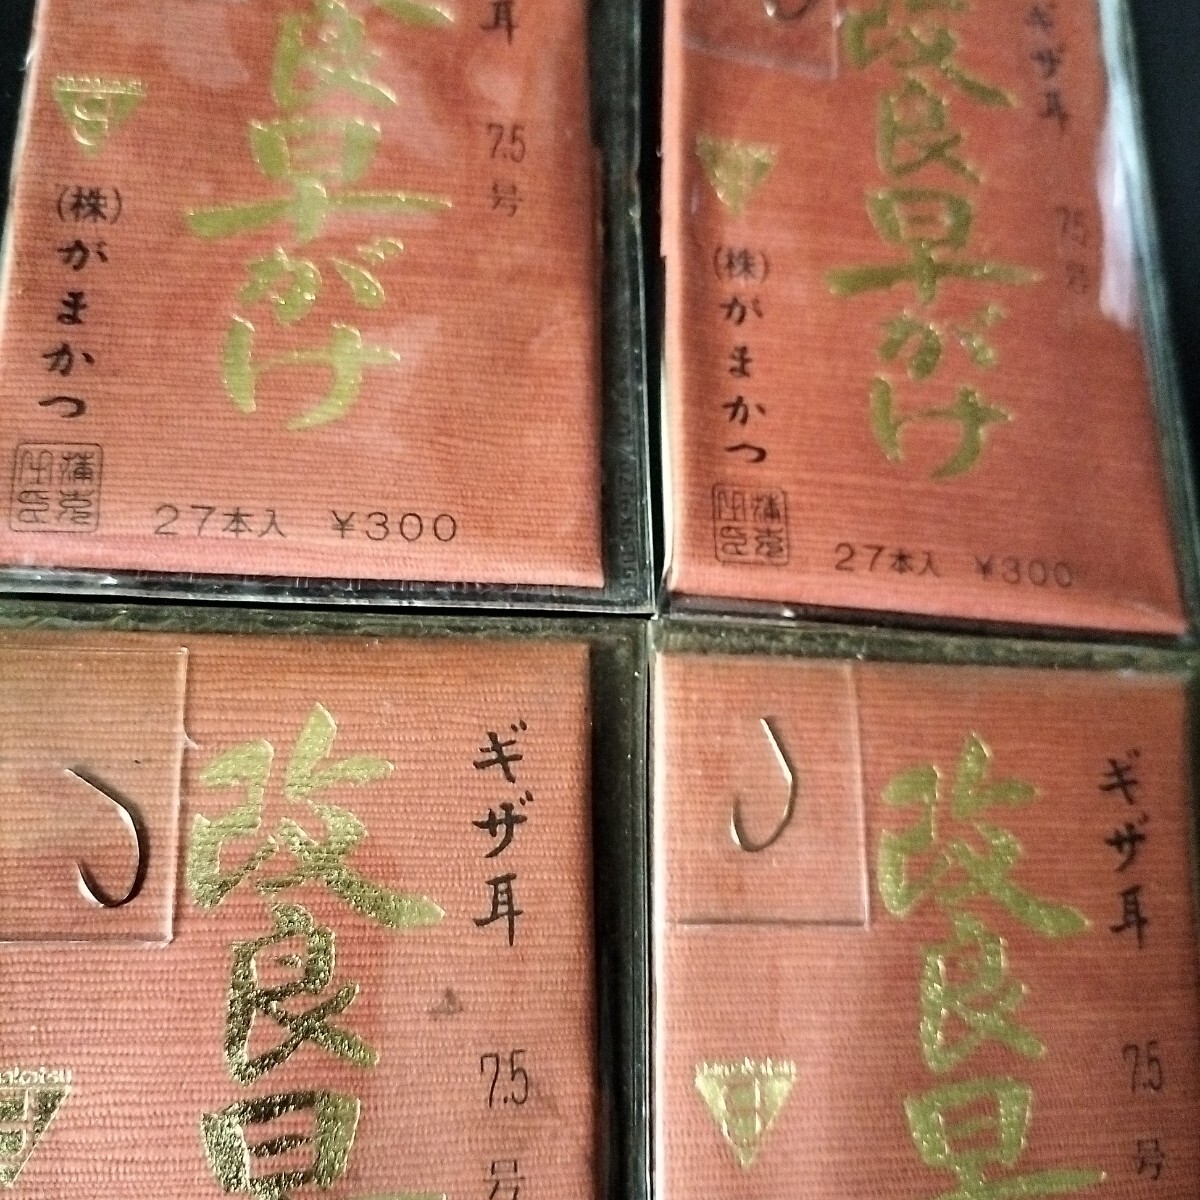 改良早がけ
耳
7.5
号
(株)がまかつ
27本入 ¥300
改良早がけ
ギザ耳
7.5
号
(株)がまかつ
27本入 ¥300
改良早
ギザ耳
7.5
号
改良早
ギザ耳
7.5
号
Gamakatsu